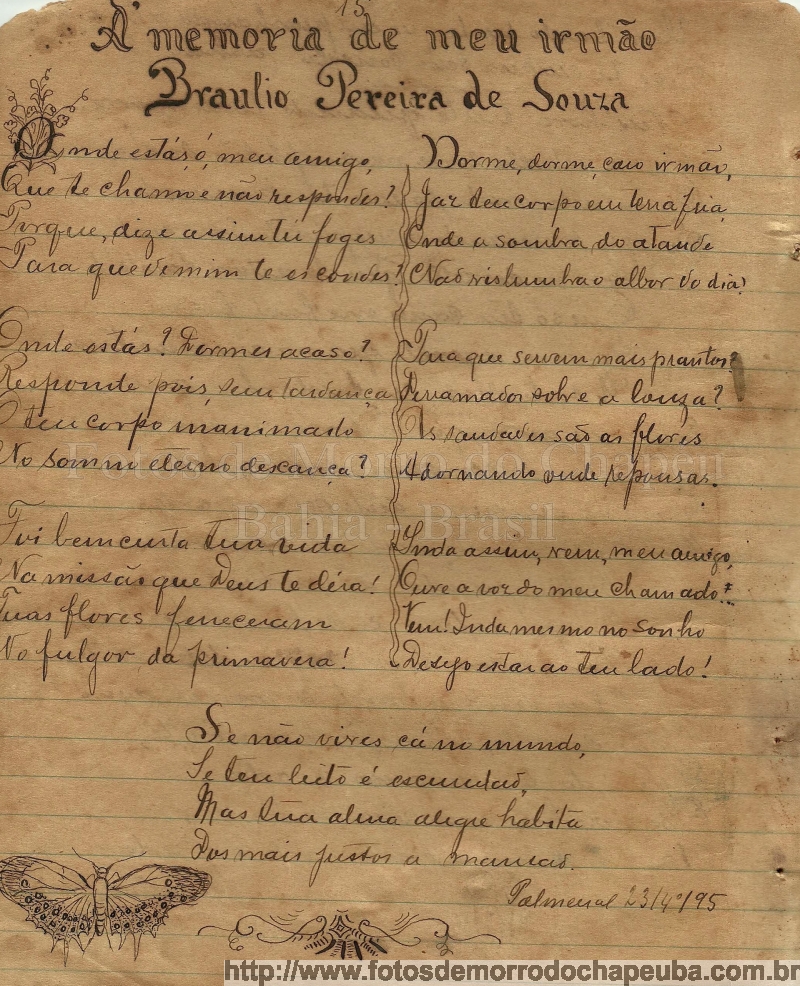 15
A' memoria de meu irmão
Braulio Pereira de Souza
Onde estás, ó, meu amigo,
Que te chamo e não respondes?
Porque, dize assim tu foges
Para que de mim te escondes?
Onde estás? Dormes acaso?
Responde pois, sem tardança
O teu corpo inanimado
No somno eterno descança?
Foi bem curta tua vida
Na missão que Deus te déra!
Tuas flores feneceram
No fulgor da primavera!
Dorme, dorme, caro irmão,
Jaz teu corpo em terra fria,
Onde a sombra do ataude
Não vislumbra o albor do dia!
Para que servem mais prantos?
Derramados sobre a louza?
As saudades são as flores
Adornando onde repousas.
Inda assim, vem, meu amigo,
Ouve a voz do meu chamado!
Vem! Inda mesmo no sonho
Desejo estar ao teu lado!
Se não vives cá no mundo,
Se teu leito é escuridão,
Mas tua alma alegre habita
Dos mais justos a mansão.
Palmeiral 23/4º/95
Fotos de Morro do Chapéu
Bahia - Brasil
http://www.fotosdemorrodochapeuba.com.br